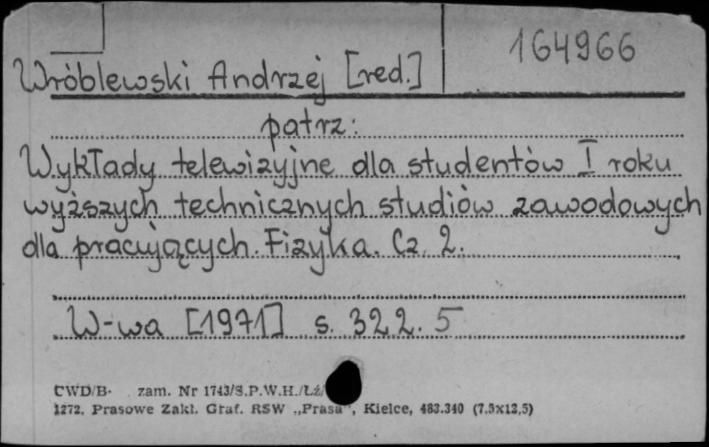 164966
Wróblewski Andrzej [red.]
patrz:
Wykłady telewizyjne dla studentów I roku
wyższych technicznych studiów zawodowych
dla pracujących. Fizyka. Cz. 2.
W-wa [1971] s. 322. 5
CWD/B- zam. Nr 1743/S.P.W.H./Łź/
1272. Prasowe Zakł. Graf. RSW „Prasa", Kielce, 483.340 (7,5x12,5)